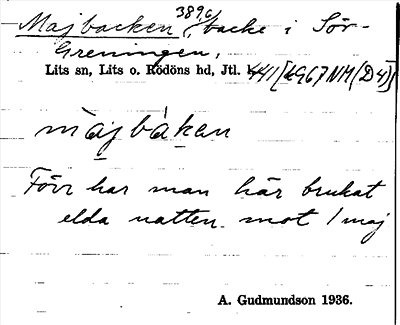 Majbacken, 389,c/ backe i Sör-
Greningen,
Lits sn, Lits o. Rödöns hd, Jtl. 441[4967 NM(D4)]
màjbàken
Förr har man här brukat
elda natten mot 1 maj
A. Gudmundson 1936.